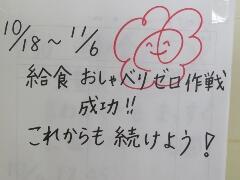 10/18～11/6
給食 おしゃべりゼロ作戦
成功!!
これからも 続けよう!